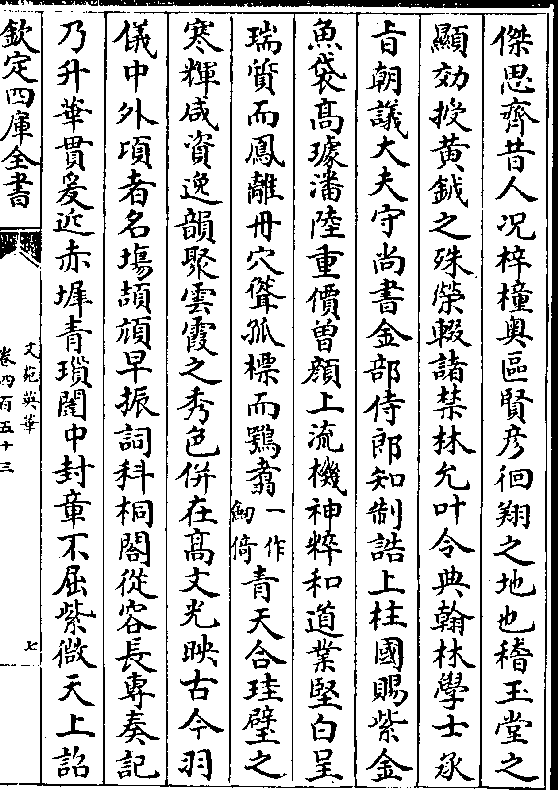 傑思齊昔人况梓橦奥區賢彦徊翔之地也稽玉堂之
顯効授黄鉞之殊榮輟諸禁林允叶令典翰林學士承
㫖朝議大夫守尚書金部侍郎知制誥上柱國賜紫金
魚袋髙璩潘陸重價曽顔上流機神粹和道業堅白呈
瑞質而鳳離丹穴聳孤標而鶚翥一作劒倚青天合珪璧之
寒輝咸資逸韻聚雲霞之秀色併在髙文光映古今羽
儀中外項者名塲頡頏早振詞科桐閣從容長専奏記
乃升華貫爰近赤墀青瑣闥中封章不屈紫微天上詔
欽定四庫全書
文苑英華
卷四百五十三
七